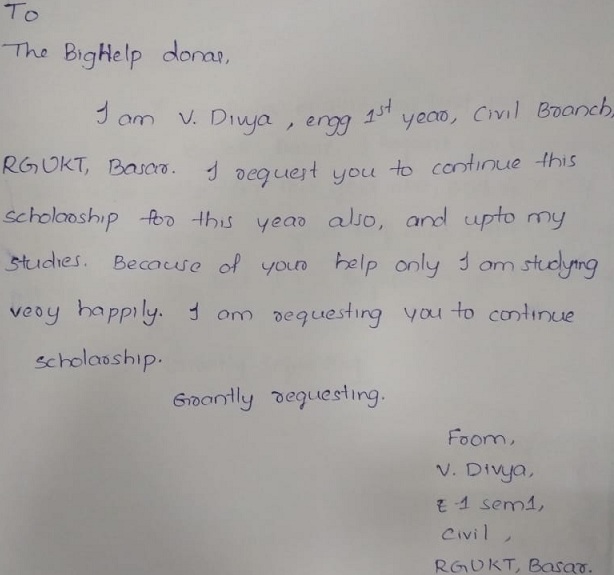 To
The BigHelp donar,
I am V. Divya, engg 1st year, Civil Branch,
RGUKT, Basar. I request you to continue this
scholarship for this year also, and upto my
studies. Because of your help only I am studying
very happily. I am requesting you to continue
scholarship.
Grantly requesting.
From,
V. Divya,
E 1 sem1,
Civil,
RGUKT, Basar.